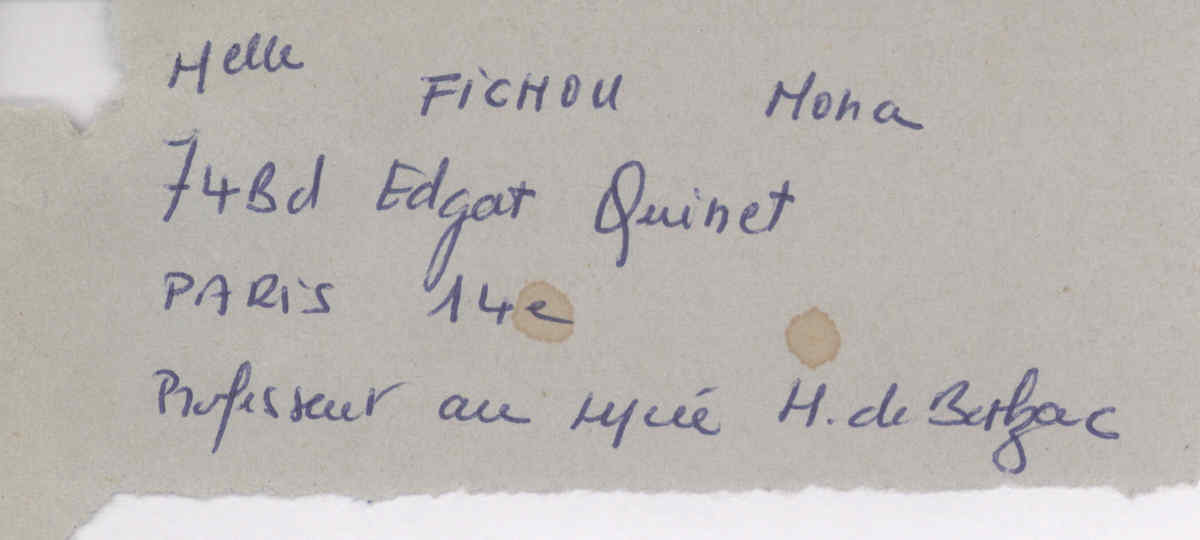 Melle FICHOU Mona
74 Bd Edgar Quinet
PARIS 14e
Professeur au lycée H. de Balzac